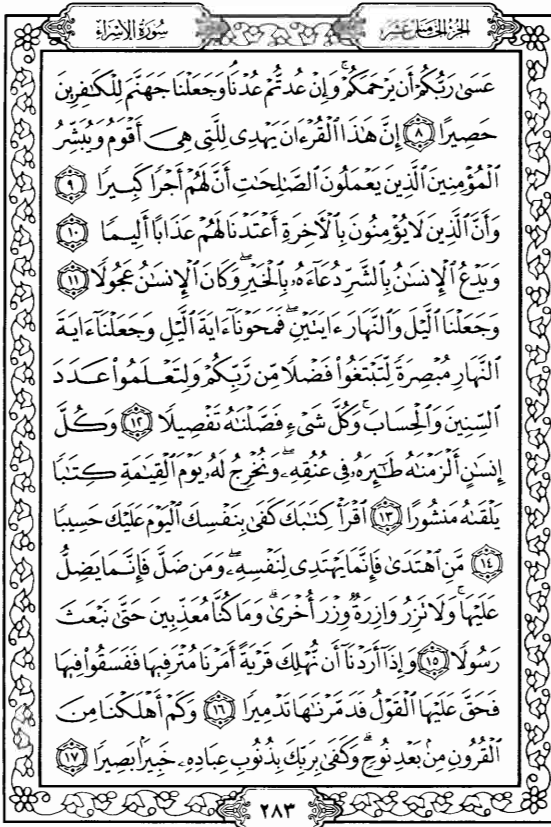 سُورَةُ الإِسْرَاءِ
الجُزْءُ الخَامِسَ عَشَرَ
عَسَىٰ رَبُّكُمْ أَن يَرْحَمَكُمْ ۚ وَإِنْ عُدتُّمْ عُدْنَا ۘ وَجَعَلْنَا جَهَنَّمَ لِلْكَٰفِرِينَ
حَصِيرًا ﴿٨﴾ إِنَّ هَٰذَا ٱلْقُرْءَانَ يَهْدِى لِلَّتِى هِىَ أَقْوَمُ وَيُبَشِّرُ
ٱلْمُؤْمِنِينَ ٱلَّذِينَ يَعْمَلُونَ ٱلصَّٰلِحَٰتِ أَنَّ لَهُمْ أَجْرًا كَبِيرًا ﴿٩﴾
وَأَنَّ ٱلَّذِينَ لَا يُؤْمِنُونَ بِٱلْءَاخِرَةِ أَعْتَدْنَا لَهُمْ عَذَابًا أَلِيمًا ﴿١٠﴾
وَيَدْعُ ٱلْإِنسَٰنُ بِٱلشَّرِّ دُعَآءَهُۥ بِٱلْخَيْرِ ۖ وَكَانَ ٱلْإِنسَٰنُ عَجُولًا ﴿١١﴾
وَجَعَلْنَا ٱلَّيْلَ وَٱلنَّهَارَ ءَايَتَيْنِ ۖ فَمَحَوْنَآ ءَايَةَ ٱلَّيْلِ وَجَعَلْنَآ ءَايَةَ
ٱلنَّهَارِ مُبْصِرَةً لِّتَبْتَغُوا۟ فَضْلًا مِّن رَّبِّكُمْ وَلِتَعْلَمُوا۟ عَدَدَ
ٱلسِّنِينَ وَٱلْحِسَابَ ۚ وَكُلَّ شَىْءٍ فَصَّلْنَٰهُ تَفْصِيلًا ﴿١٢﴾ وَكُلَّ
إِنسَٰنٍ أَلْزَمْنَٰهُ طَٰٓئِرَهُۥ فِى عُنُقِهِۦ ۖ وَنُخْرِجُ لَهُۥ يَوْمَ ٱلْقِيَٰمَةِ كِتَٰبًا
يَلْقَىٰهُ مَنشُورًا ﴿١٣﴾ ٱقْرَأْ كِتَٰبَكَ كَفَىٰ بِنَفْسِكَ ٱلْيَوْمَ عَلَيْكَ حَسِيبًا
﴿١٤﴾ مَّنِ ٱهْتَدَىٰ فَإِنَّمَا يَهْتَدِى لِنَفْسِهِۦ ۖ وَمَن ضَلَّ فَإِنَّمَا يَضِلُّ
عَلَيْهَا ۚ وَلَا تَزِرُ وَازِرَةٌ وِزْرَ أُخْرَىٰ ۗ وَمَا كُنَّا مُعَذِّبِينَ حَتَّىٰ نَبْعَثَ
رَسُولًا ﴿١٥﴾ وَإِذَآ أَرَدْنَآ أَن نُّهْلِكَ قَرْيَةً أَمَرْنَا مُتْرَفِيهَا فَفَسَقُوا۟ فِيهَا
فَحَقَّ عَلَيْهَا ٱلْقَوْلُ فَدَمَّرْنَٰهَا تَدْمِيرًا ﴿١٦﴾ وَكَمْ أَهْلَكْنَا مِنَ
ٱلْقُرُونِ مِنۢ بَعْدِ نُوحٍ ۗ وَكَفَىٰ بِرَبِّكَ بِذُنُوبِ عِبَادِهِۦ خَبِيرًۢا بَصِيرًا ﴿١٧﴾
٢٨٣